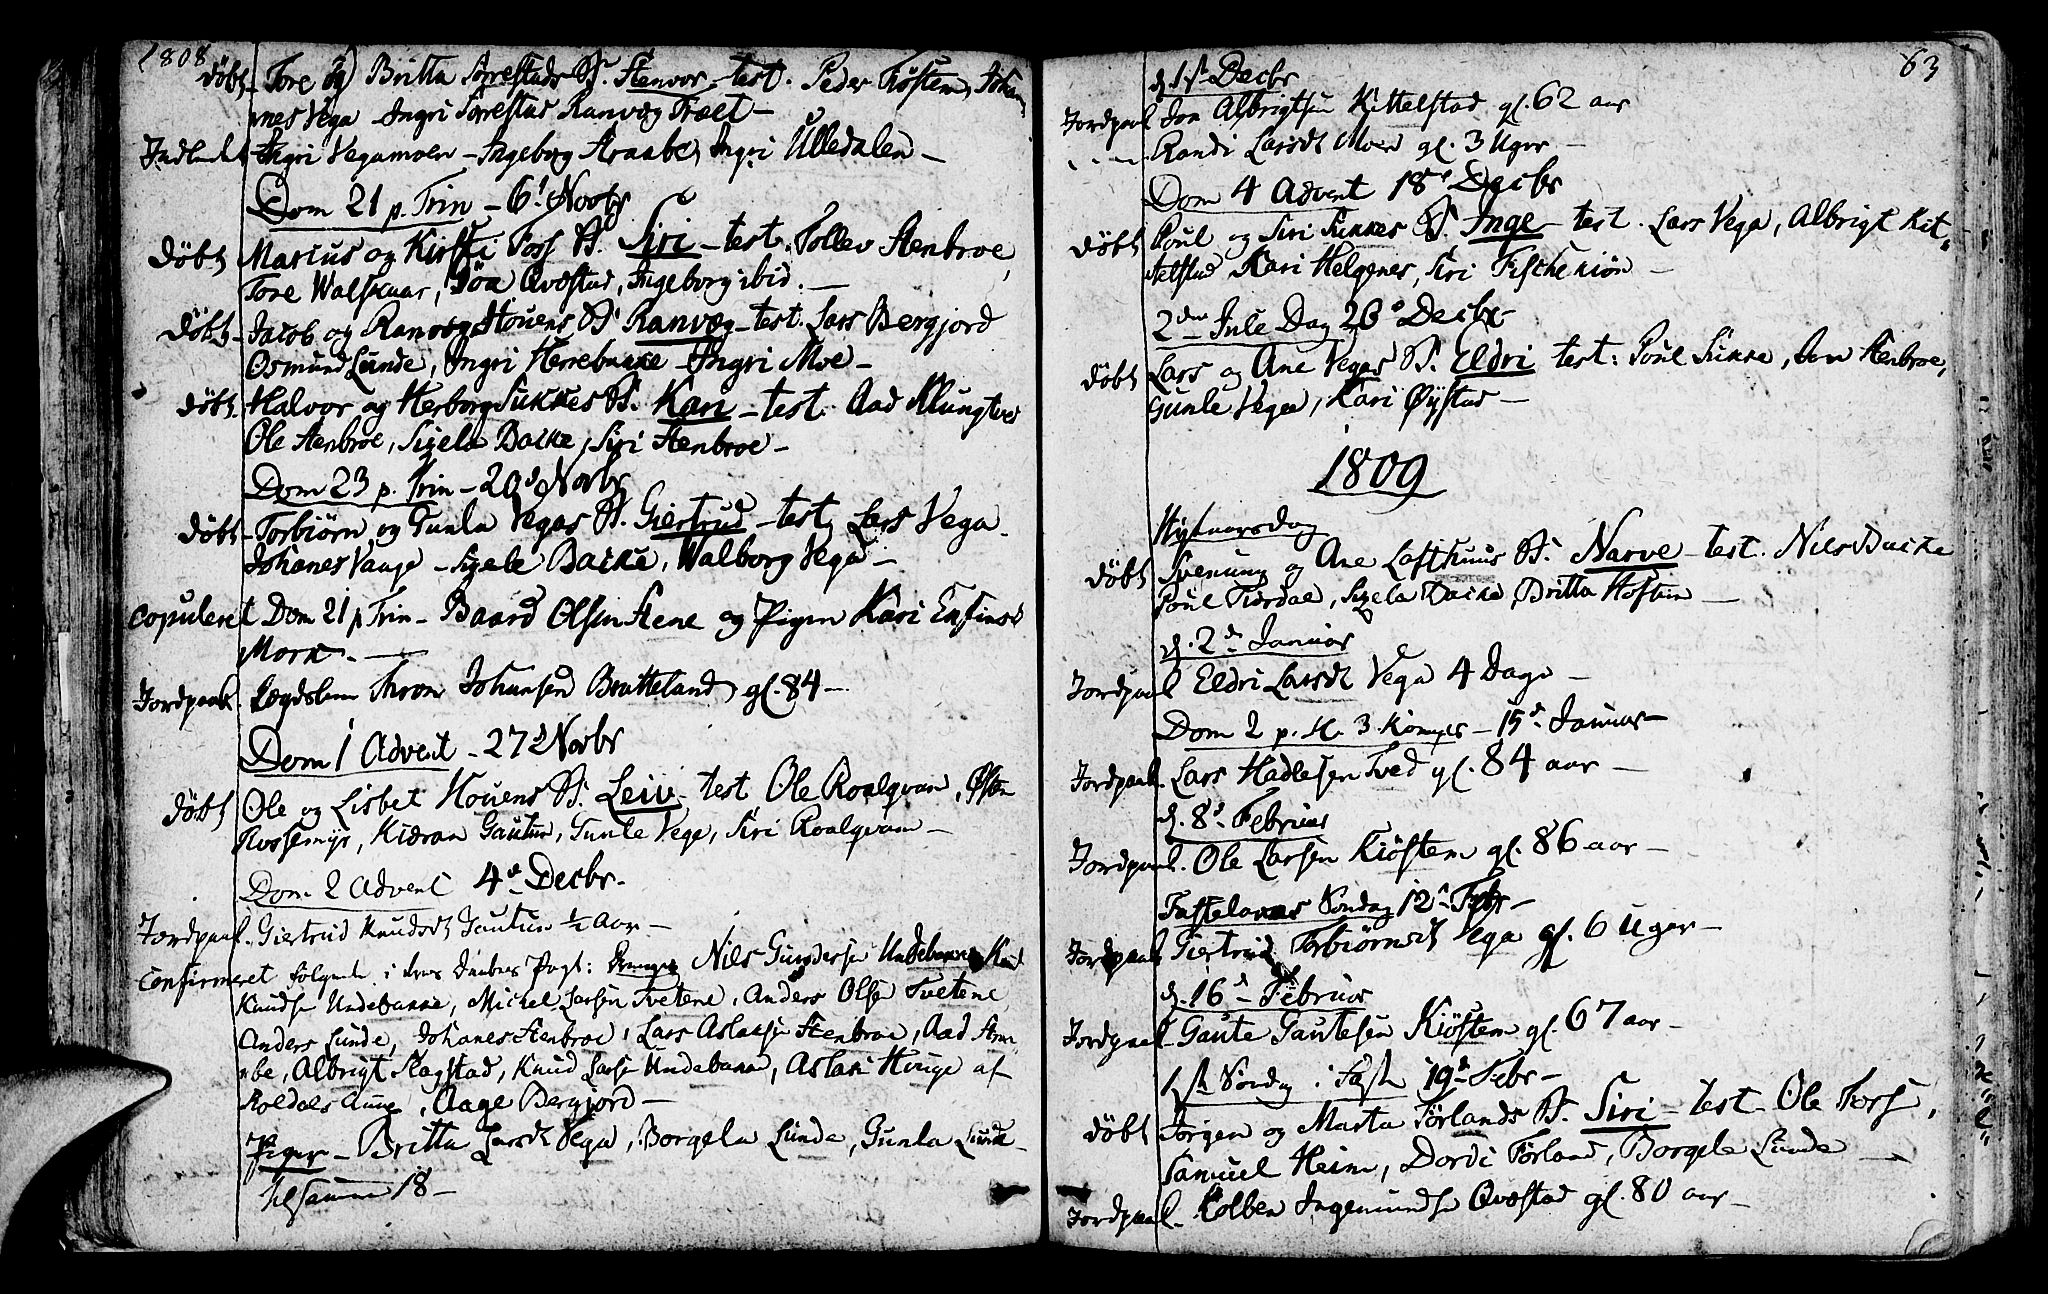 1808
döbt Tore og Britta Sørrestads B. Stenvor - test. Peder Kiøstem, Johan
nes Vega - Ingri Sørrestas Ranvæg Træet -
Indled Ingri Vegamoen - Ingeborg Straabe, Ingri Ulledalen -
Dom 21 p. Trin - 6t Novbr
döbt Marius og Kirsti Fosś B. Siri - test. Tollev Stenbroe,
Tore Walskaar, Qvæstad, Ingeborg ibid. -
döbt Jacob og Ranveg Houens B. Ranvæg - test. Lars Bergjord
Osmund Lunde, Ingri Herrebakke - Ingri Moe -
döbt. Halvor og Herborg Sukkes B. Kari - test. Aad Klungtvet
Ole Stenbroe, Sigela Bakke, Siri Stenbroe -
Dom 23 p. Trin - 20d Novbr
döbt Torbiörn og Gunla Vegas B. Giertrud - test, Lars Vega.
Johanes Vaage - Sigele Bakke, Walborg Vega -
Copuleret Dom 21 p Trin - Baard Olsen Stene og Pigen Kari
Mork. -
Jordpaak. Lægdslem Thron Johansen Bratteland gl. 84 -
Dom 1 Advent - 27d Novbr
döbt Ole og Lisbet Houens B. Leiv - test Ole Roalqvam, Østen
Rossemyr, Kidran Gautun, Gunle Vega, Siri Roalqvam -
Dom. 2 Advent 4d Decbr.
Jordpaak. Giertrud Knudsdt Jautun 1/2 Aar -
Confirmeret følgende i Præst: Drenger Nils Gundersen Undebakke Knud
Knudsen Undebakke, Michel Larsen Tvetene, Anders Olsen Tvetene
Anders Lunde, Johanes Stenbroe, Lars Aslaksen Stenbroe, Aad Straa
be, Albrigt Fagstad, Knud Larsen Undebakke, Aslak Houge af
Roldals Annex, Aage Bergjord -
Piger - Britta Larsdt Vega, Borgela Lunde, Gunla Lunde -
Tilsamme 18 -
63
d. 1st Decbr
Jordpaak Jon Albrigtsen Kittelstad gl. 62 aar
Randi Larsdt Moe gl. 3 Uger -
Dom 4 Advent 18d Decbr
döbt Poul og Siri Sukkes B. Inge - test. Lars Vega, Albrigt Kit-
telstad Kari Helgenes, Siri Fischekiön -
2den Jule Dag 26d Decbr
döbt Lars og Ane Vegas B. Eldri test: Poul Sukke, Jon Stenbroe,
Gunle Vega, Kari Øystad -
1809
Nytaarsdag
döbt Svenung og Ane Lofthuus B. Narve - test. Nils Bakke
Poul Fierdal, Sigela Bakke, Britta Hosten -
d. 2d Januar
Jordpaak Eldri Larsdt Vega 4 Dage -
Dom 2 p. H. 3 Konger - 15d Januar -
Jordpaak. Lars Hadlesen Tved gl. 84 aar -
d. 8d Februar
Jordpaak. Ole Larsen Kiöstem gl. 86 aar -
Fastelavns Söndag 12d Febr -
Jordpaak Giertrud Torbiörnsdt Vega gl. 6 Uger -
d. 16d Februar
Jordpaak Gaute Gautesen Kiöstem gl. 67 aar -
1st Söndag i Faste 19d Febr -
döbt Jörgen og Marta Förlands B. Siri - test - Ole Fosś,
Samuel Heim, Dordi Förland, Borgele Lunde -
Jordpaak. Kolben Ingemundsen Qvæstad gl. 80 aar -